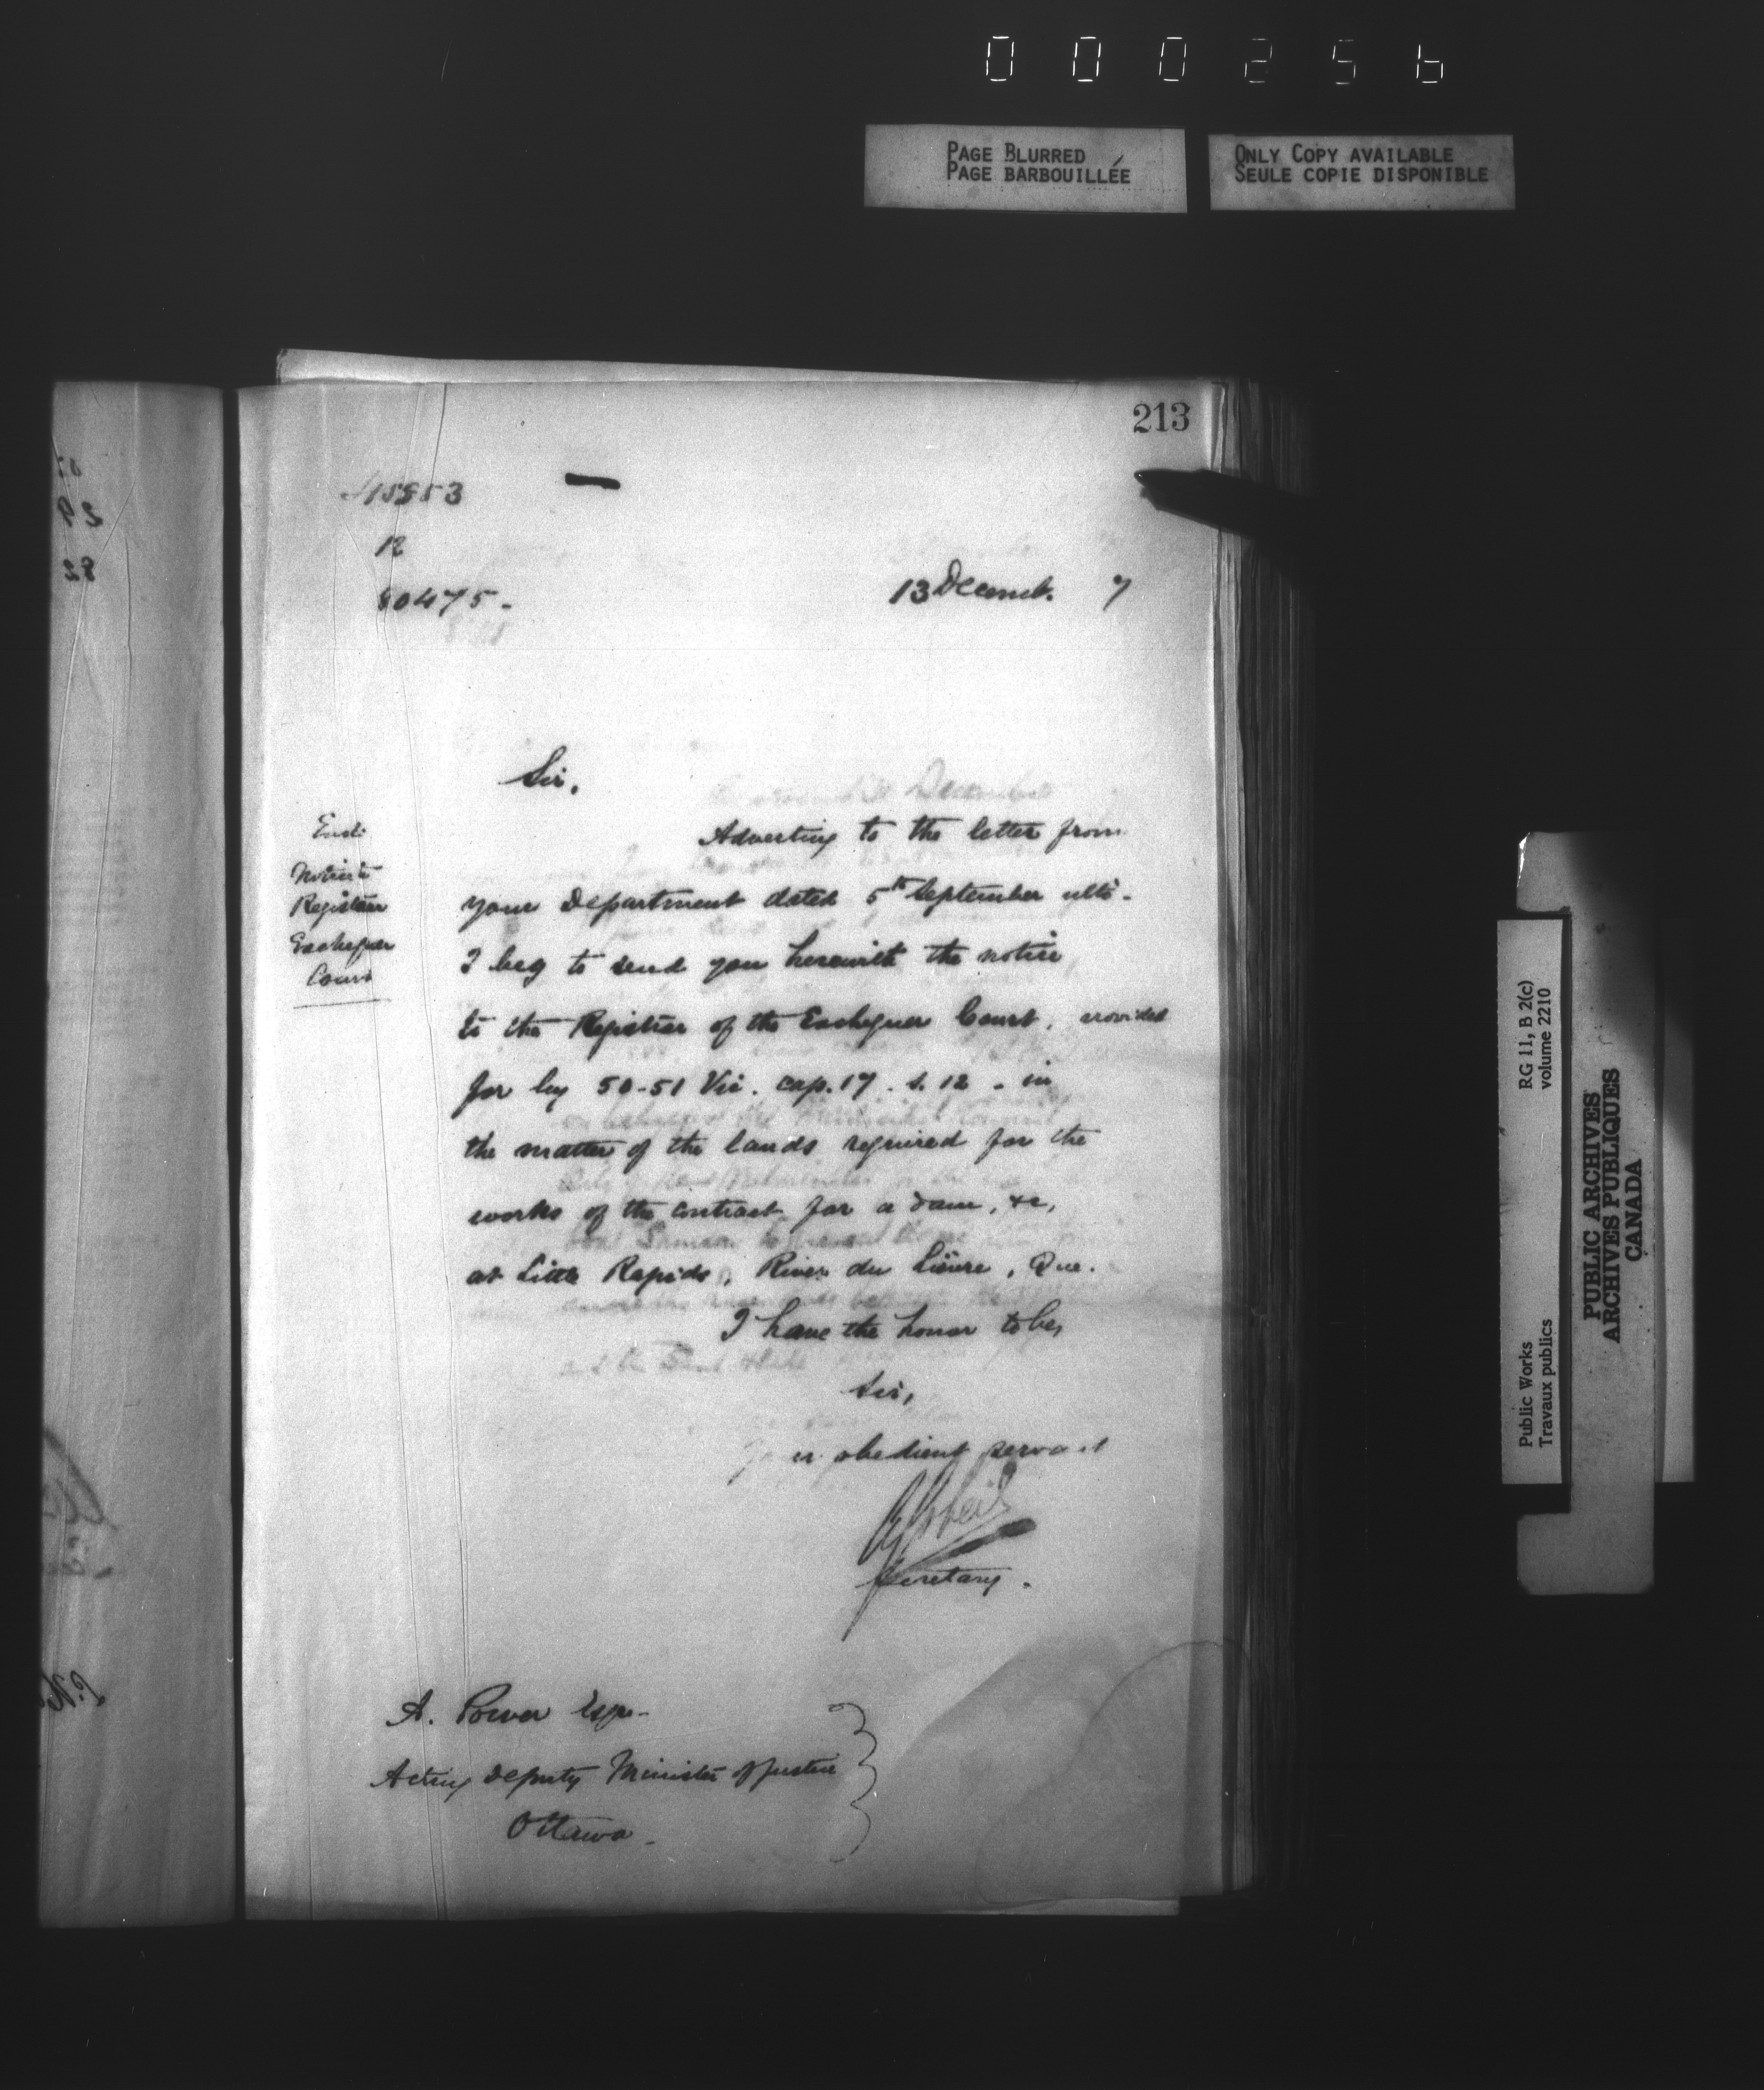 000256
PAGE BLURRED
PAGE BARBOUILLÉE
ONLY COPY AVAILABLE
SEULE COPIE DISPONIBLE
213
15853
12
80475-
13 Decemb. 7
Sir,
Encl:
Notice to
Registrar
Exchequer
Court
Adverting to the letter from
your Department dated 5th September ulto.
I beg to send you herewith the notice
to the Registrar of the Exchequer Court, provided
for by 50-51 Vic. cap. 17. s. 12. in
the matter of the lands required for the
works of the contract for a dam, &c,
at Little Rapids, River du Lièvre, Que.
I have the honor to be,
Sir,
obedient servant
Secretary.
A. Power Esqr-
Acting Deputy Minister of Justice
Ottawa-
Public Works RG 11, B 2(c)
Travaux publics volume 2210
PUBLIC ARCHIVES
ARCHIVES PUBLIQUES
CANADA